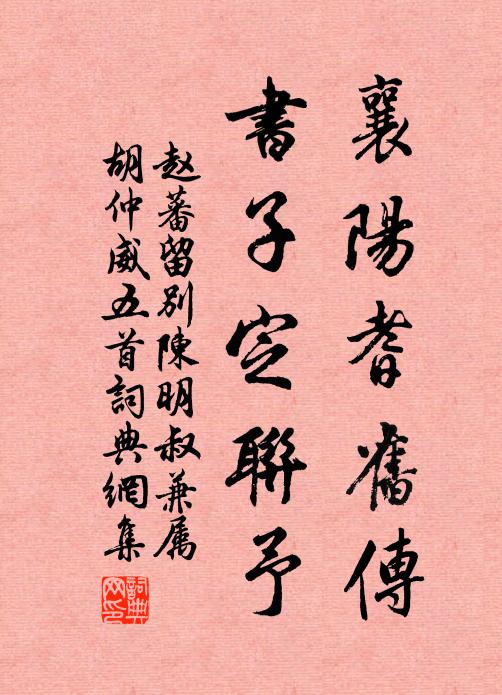 襄陽耆舊傳
書子定聯予
赵蕃留別陳明叔兼属
胡仲威五首詞典網集
詞典
网印